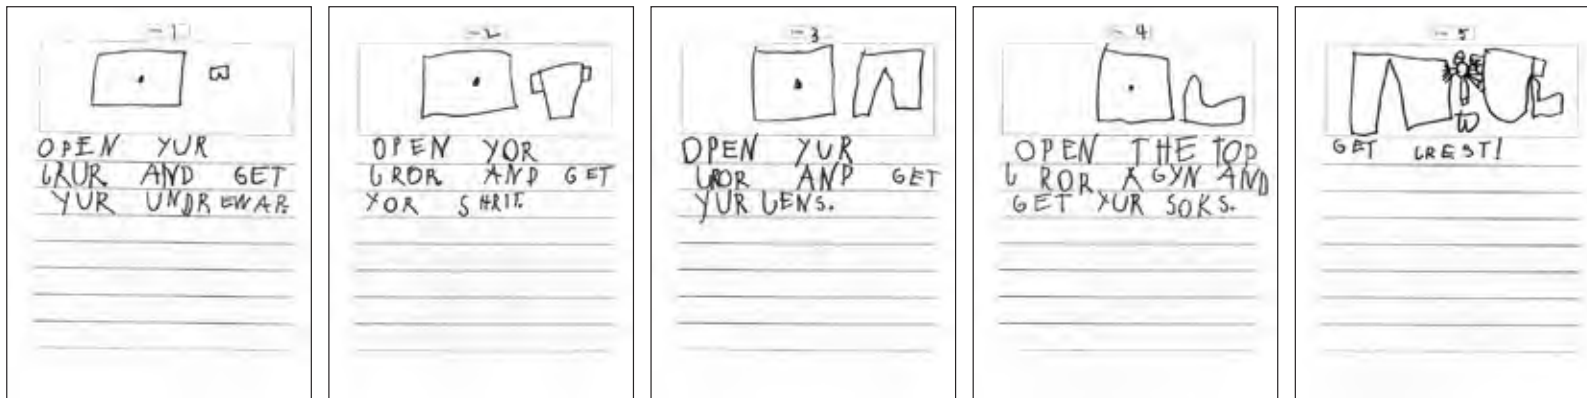 - 1
OPEN YUR
LRUR AND GET
YUR UNDR EWAR.
- 2
OPEN YOR
LROR AND GET
YOR SHRIT.
- 3
OPEN YUR
LROR AND GET
YUR LENS.
- 4
OPEN THE TOP
LROR AGYN AND
GET YUR SOKS.
- 5
GET LREST!